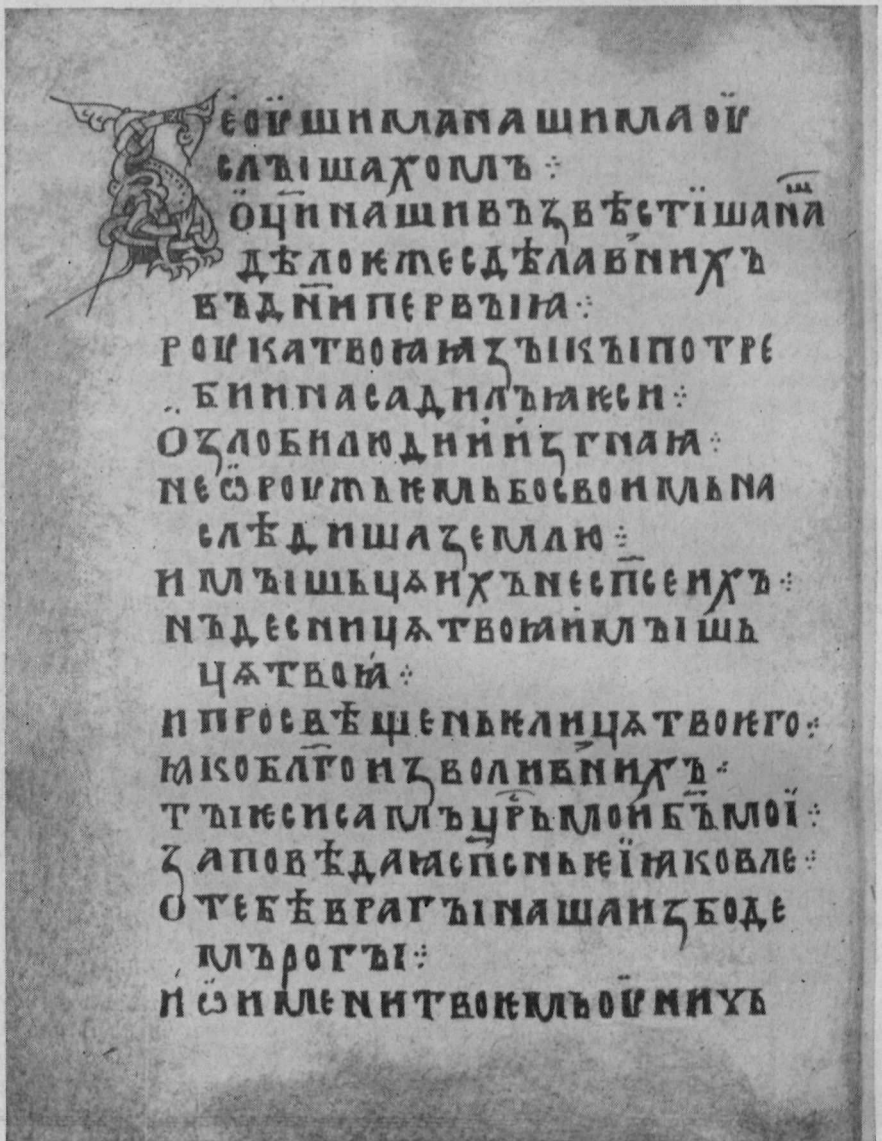 Беоушиманашимаоу
слꙑшахомъ⁘
оц҃инашивъзвѣстїшанⷲ҇а
дѣлоѥжесдѣлавн҃ихъ
въдн҃ипервꙑꙗ⁘
роукатвоꙗꙗзꙑкꙑпотре
биинасадилъꙗѥси⁘
озлобилюдииизгнаꙗ⁘
неѿроужьѥмьбосвоимьна
слѣдишаземлю⁘
имꙑшьцѧихънесп҃сеихъ⁘
нъдесницѧтвоꙗимꙑшь
цѧтвоꙗ⁘
ипросвѣщеньѥлицѧтвоѥго⁘
ꙗкоблг҃оизволивн҃ихъ⁘
тꙑѥсисамъцр҃ьмоибъ҃мої⁘
заповѣдаꙗсп҃сньѥїꙗковле⁘
отебѣврагꙑнашаизбоде
мърогꙑ⁘
иѿименитвоѥмьоуничь